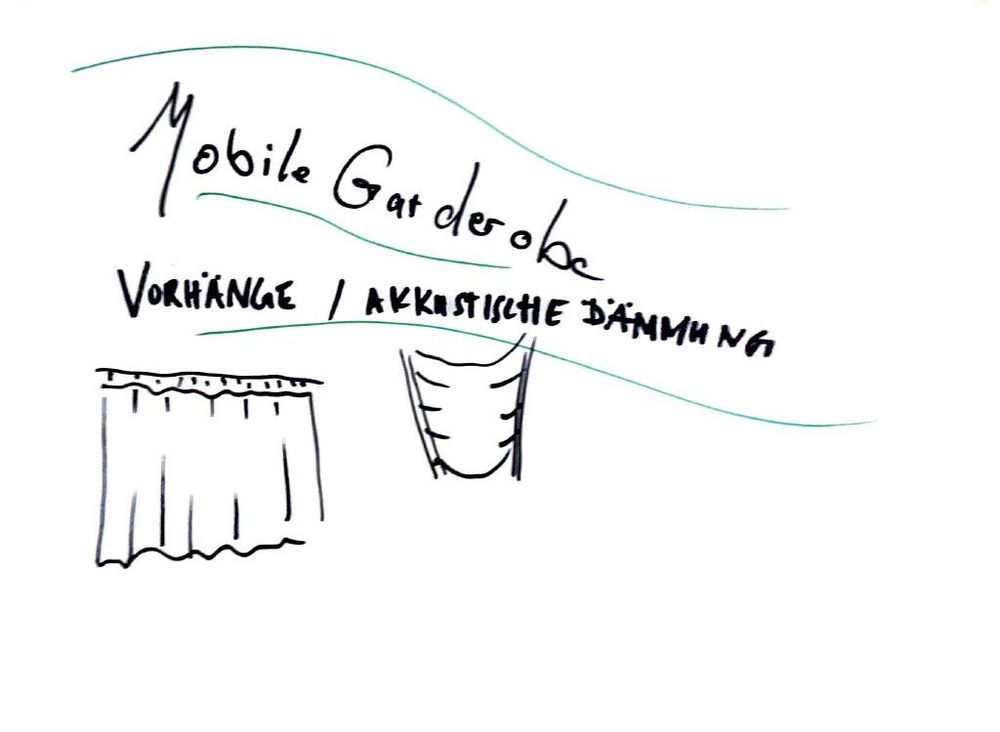 Mobile Garderobe
VORHÄNGE / AKKUSTISCHE DÄMMUNG